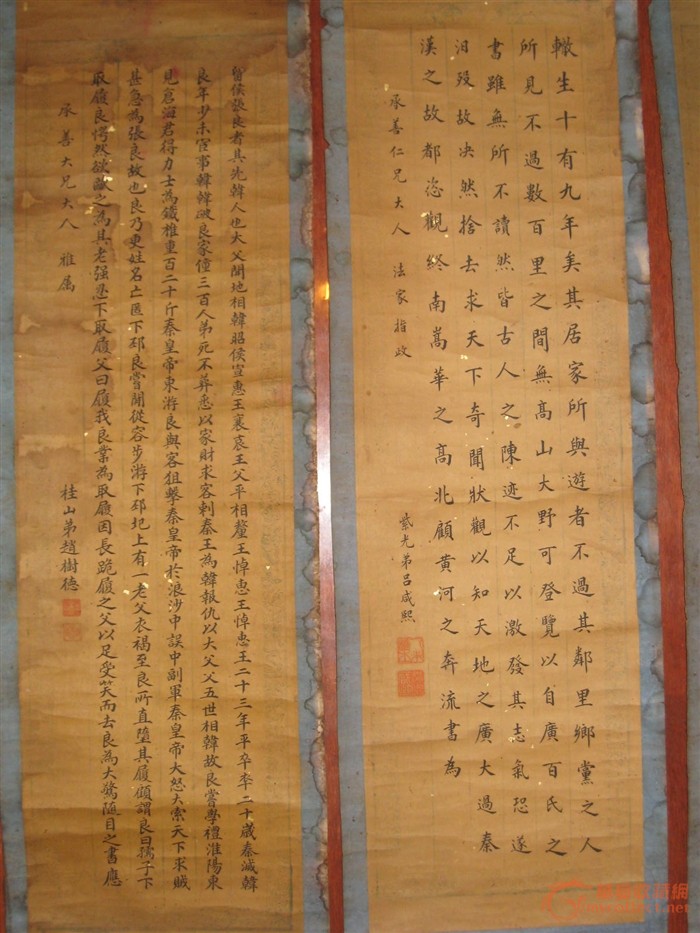 轍生十有九年矣其居家所與遊者不過其鄰里鄉黨之人
所見不過數百里之間無高山大野可登覽以自廣百氏之
書雖無所不讀然皆古人之陳迹不足以激發其志氣恐遂
汨殁故决然捨去求天下奇聞狀觀以知天地之廣大過秦
漢之故都恣觀終南嵩華之高北顧黄河之奔流書為
承善仁兄大人 法家指政
弟吕咸熙
留侯張良者其先韓人也大父開地相韓昭侯宣惠王襄哀王父平相釐王悼惠王悼惠王二十三年平卒卒二十歲秦滅韓
良年少未宦事韓韓破良家僮三百人弟死不葬悉以家財求客刺秦王為韓報仇以大父父五世相韓故良嘗學禮淮陽東
見倉海君得力士為鐵椎重百二十斤秦皇帝東游良與客狙擊秦皇帝於浪沙中誤中副軍秦皇帝大怒大索天下求賊
甚急為張良故也良乃更姓名亡匿下邳良嘗閒從容步游下邳圯上有一老父衣褐至良所直墮其履顧謂良曰孺子下
取履良愕然欲敺之為其老强忍下取履父曰履我良業為取履因長跪履之父以足受笑而去良為大驚隨目之書應
承善大兄大人 雅属
桂山弟趙樹德